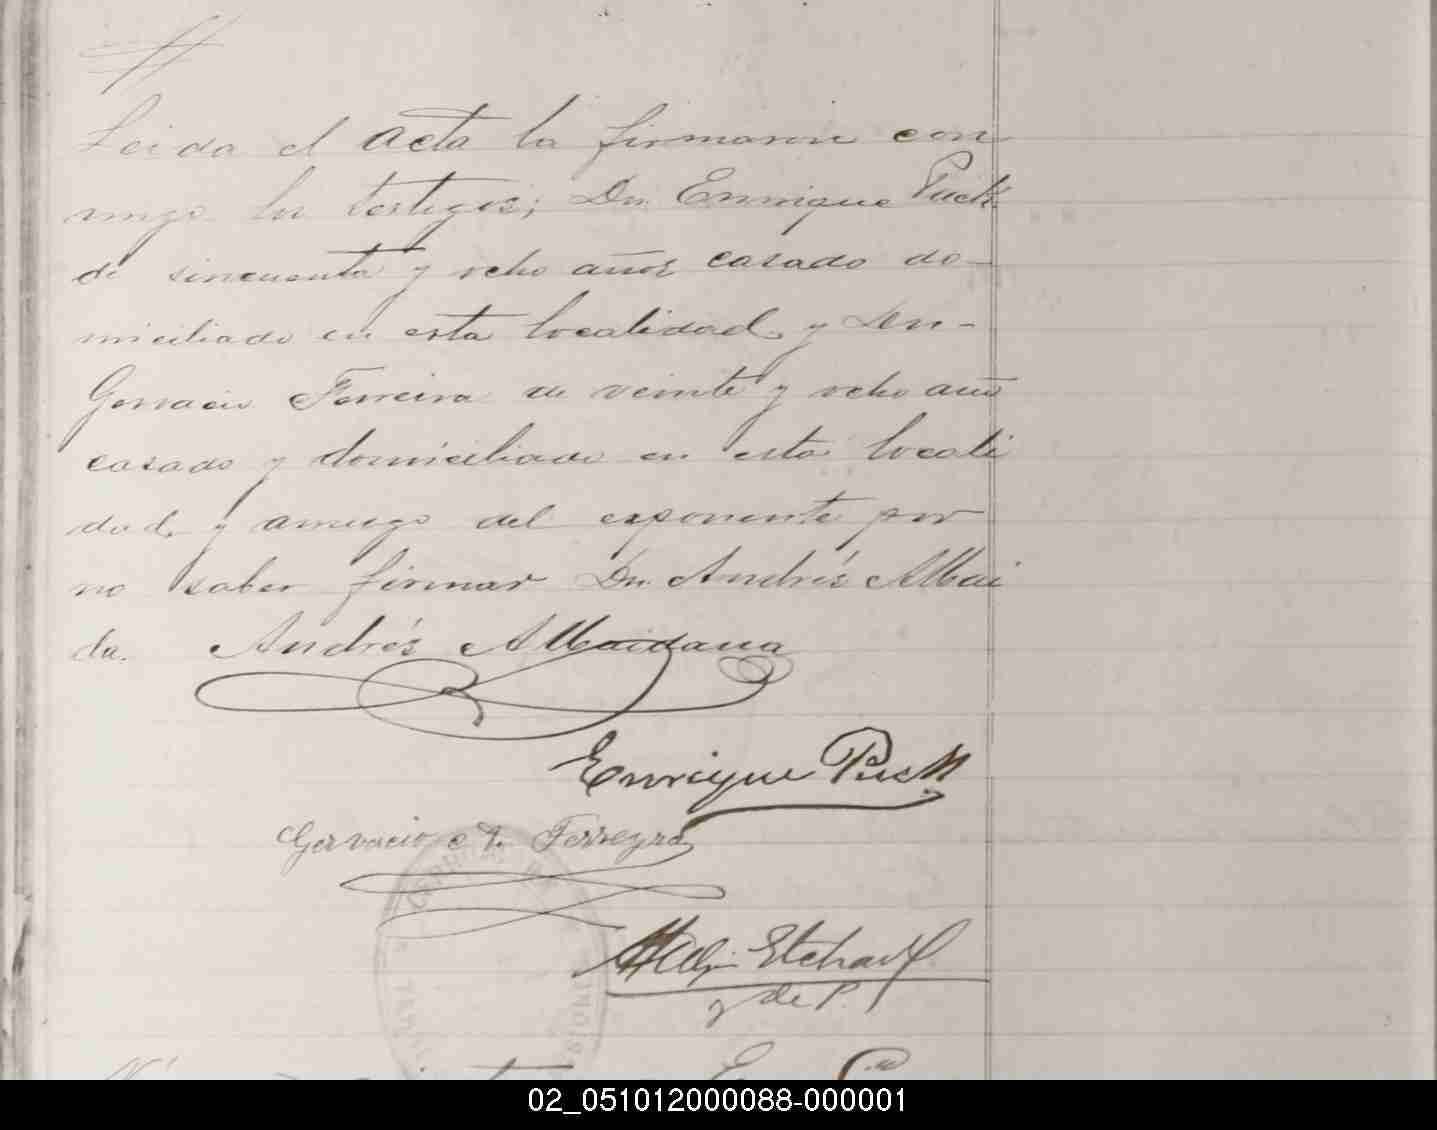 Leida el acta la firmaron con
migo los testigos; Dn. Enrique Puck
de sincuenta y ocho años casado do-
miciliado en esta localidad y Don-
Gervacio Ferreira de veinte y ocho años
casado y domiciliado en esta locali
dad, y amigo del exponente por
no saber firmar Dn. Andrés Albai
da. Andrés Albaidana
Enrique Puck
Gervacio A. Ferreyra
Etchart
J de P.
02_051012000088-000001